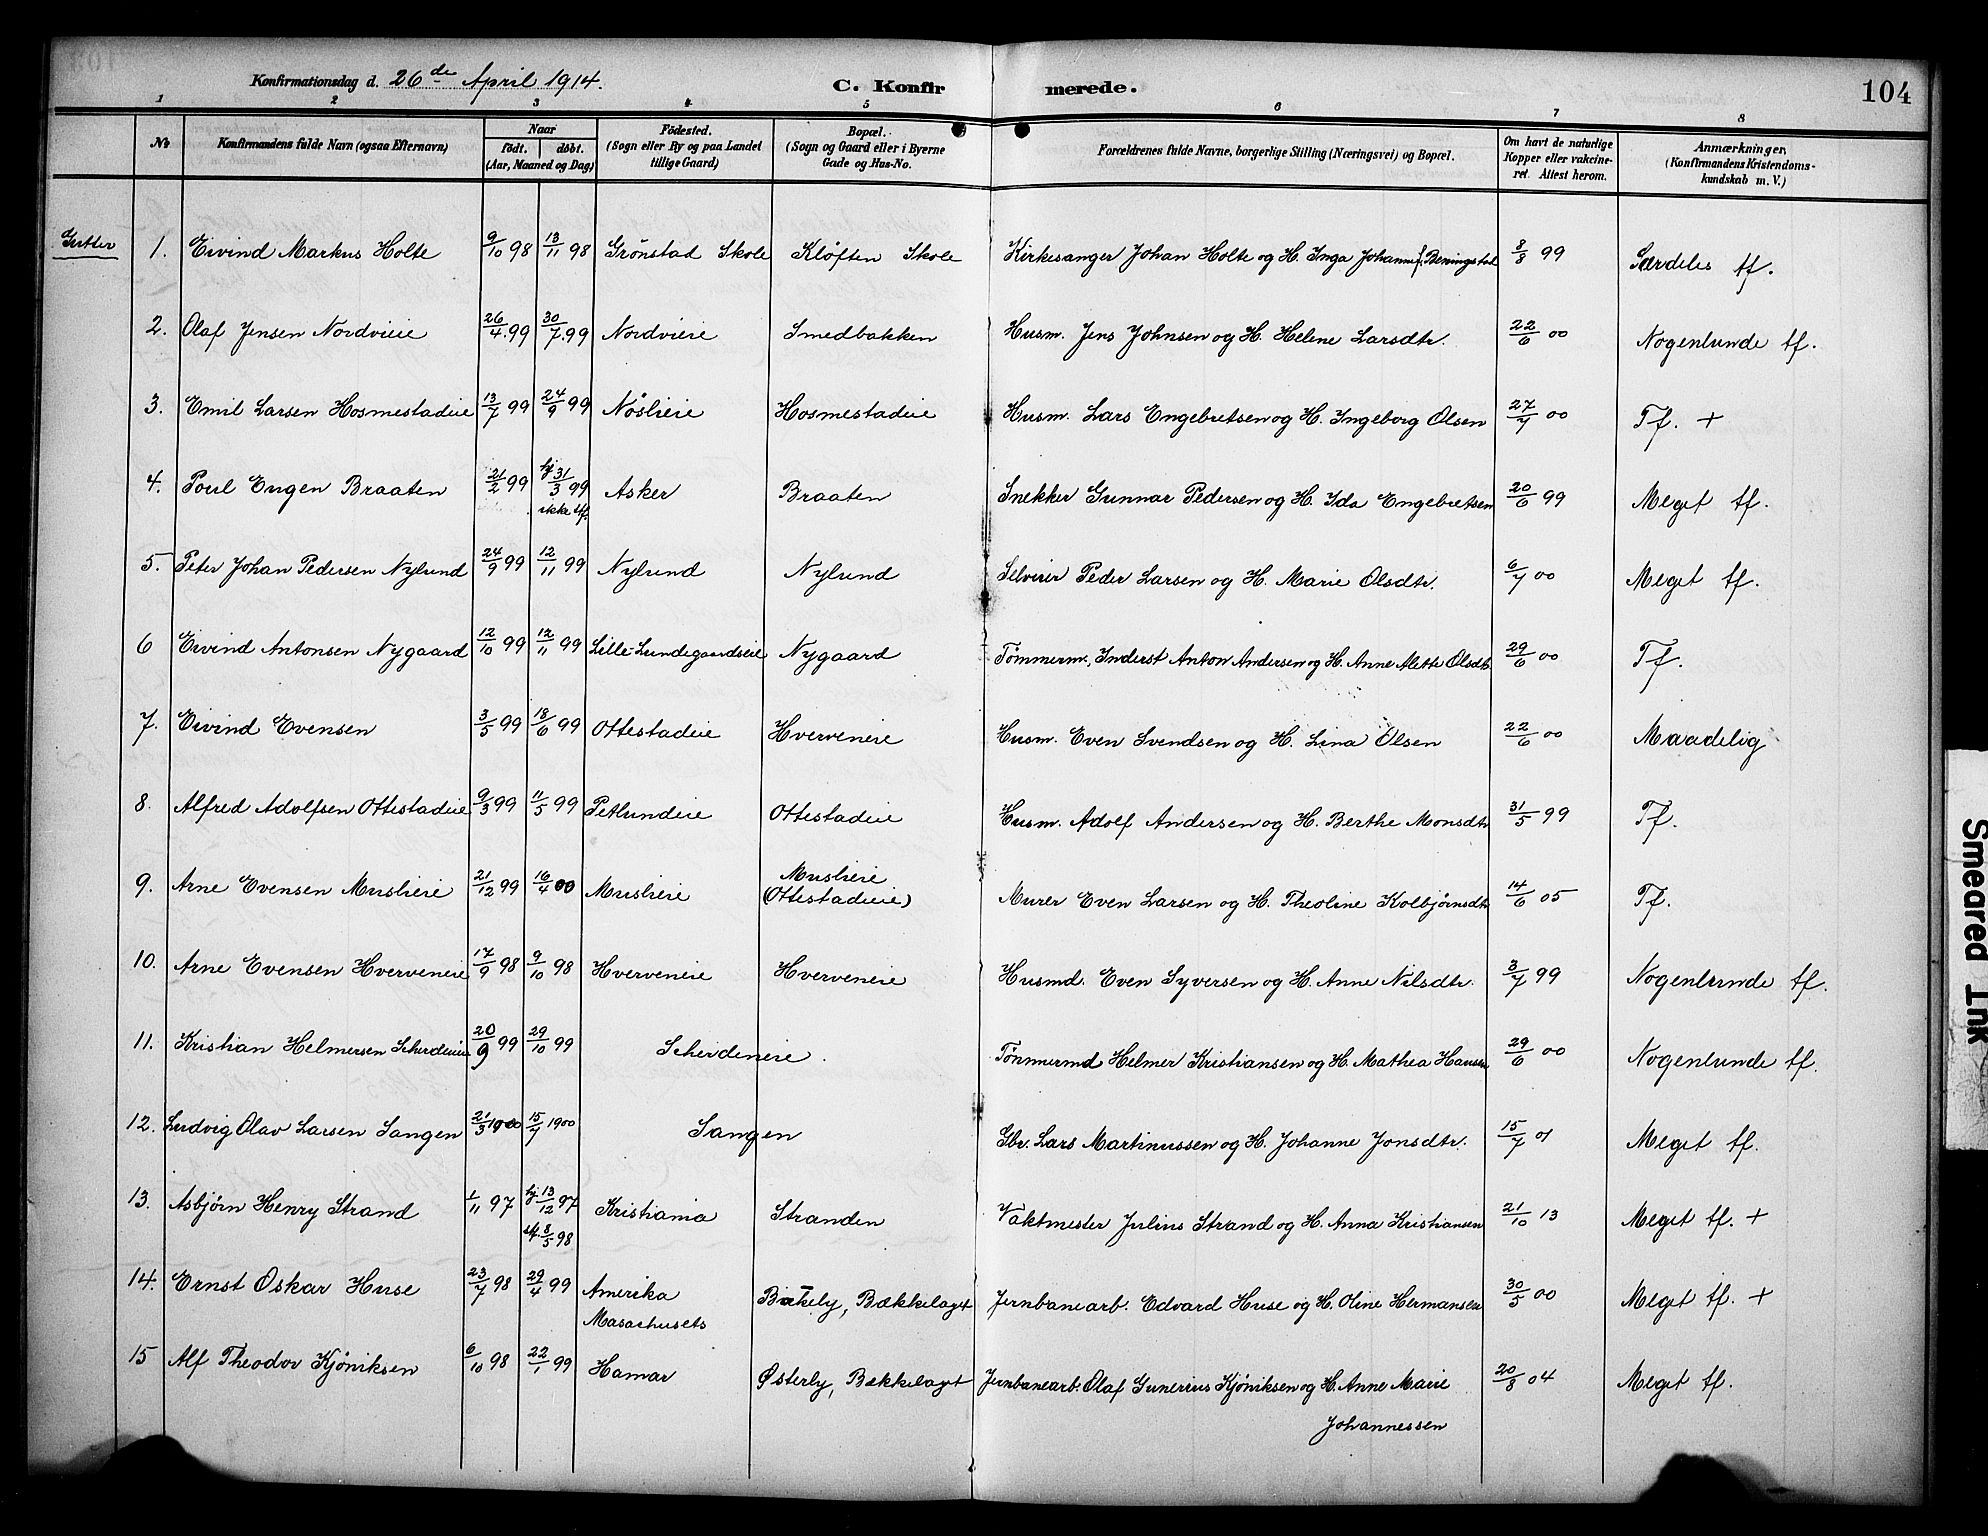 Konfirmationsdag d. 26de April 1914.
C. Konfirmerede.
104
1 2 3 4 5 6 7 8
No
Konfirmandens fulde Navn (ogsaa Efternavn)
Naar
födt. döbt.
(Aar, Maaned og Dag)
Födested.
(Sogn eller By og paa Landet
tillige Gaard)
Bopæl.
(Sogn og Gaard eller i Byerne
Gade og Hus-No.
Forældrenes fulde Navne, borgerlige Stilling (Næringsvei) og Bopæl.
Om havt de naturlige
Kopper eller vakcine-
ret. Attest herom.
Anmærkninger.
(Konfirmandens Kristendoms-
kundskab m. V.)
Gutter
1. Eivind Markus Holte 9/10 98 13/11 98 Grönstad Skole Klöften Skole Kirkesanger Johan Holte og H. Inga Johanne f. Beningstad 8/8 99 Særdeles tf.
2. Olaf Jensen Nordvieie 26/4 99 30/7 99 Nordvieie Smedbakken Husm. Jens Johnsen og H. Helene Larsdtr. 22/6 00 Nogenlunde tf.
3. Emil Larsen Hosmestadeie 13/7 99 24/9 99 Nöslieie Hosmestadeie Husm. Lars Engebretsen og H. Ingeborg Olsen 27/7 00 Tf. +
4. Poul Eugen Braaten 21/2 99 hj 31/3 99 Asker Braaten Snekker Gunnar Pedersen og H. Ida Engebretsen 20/6 99 Meget tf.
ikke stf.
5. Peter Johan Pedersen Nylund 24/9 99 12/11 99 Nylund Nylund Selveier Peder Larsen og H. Marie Olsdtr. 6/7 00 Meget tf.
6 Eivind Antonsen Nygaard 12/10 99 12/11 99 Lille-Lundegaardseie Nygaard Tömmerm., Inderst Anton Andersen og H. Anne Mette Olsdtr. 29/6 00 Tf.
7. Eivind Evensen 3/5 99 18/6 99 Ottestadeie Hverveneie Husm. Even Svendsen og H. Lina Olsen 22/6 00 Maadelig
8. Alfred Adolfsen Ottestadeie 9/3 99 11/5 99 Petlundeie Ottestadeie Husm. Adolf Andersen og H. Berthe Monsdtr 31/5 99 Tf.
9. Arne Evensen Muslieie 21/12 99 16/4 00 Muslieie Muslieie
(Ottestadeie) Murer Even Larsen og H. Theoline Kolbjörnsdtr 14/6 05 Tf.
10. Arne Evensen Hverveneie 17/9 98 9/10 98 Hverveneie Hverveneie Husmd. Even Syversen og H. Anne Nilsdtr. 3/7 99 Nogenlunde tf.
11. Kristian Helmersen Scherdeneie 20/9 99 29/10 99 Scherdeneie. Tömmermd Helmer Kristiansen og H. Mathea Hansen 29/6 00 Nogenlunde tf.
12. Ludvig Olav Larsen Sangen 21/3 1900 15/7 1900 Sangen Gbr. Lars Martinussen og H. Johanne Jonsdtr. 15/7 01 Meget tf.
13. Asbjörn Henry Strand 1/11 97 hj 13/12 97 Kristiania Stranden Vaktmester Julius Strand og H. Anna Kristiansen 21/10 13 Meget tf. +
stf. 8/5 98
14. Ernst Oskar Huse 23/7 98 29/4 99 Amerika , Bækkelaget Jernbanearb. Edvard Huse og H. Oline Hermansen 30/5 00 Meget tf. +
Masachusets
15 Alf Theodor Kjöniksen 6/10 98 22/1 99 Hamar Østerly, Bækkelaget Jernbanearb. Olaf Gunerius Kjöniksen og H. Anne Marie 20/8 04 Meget tf.
Johannessen
Smeared Ink